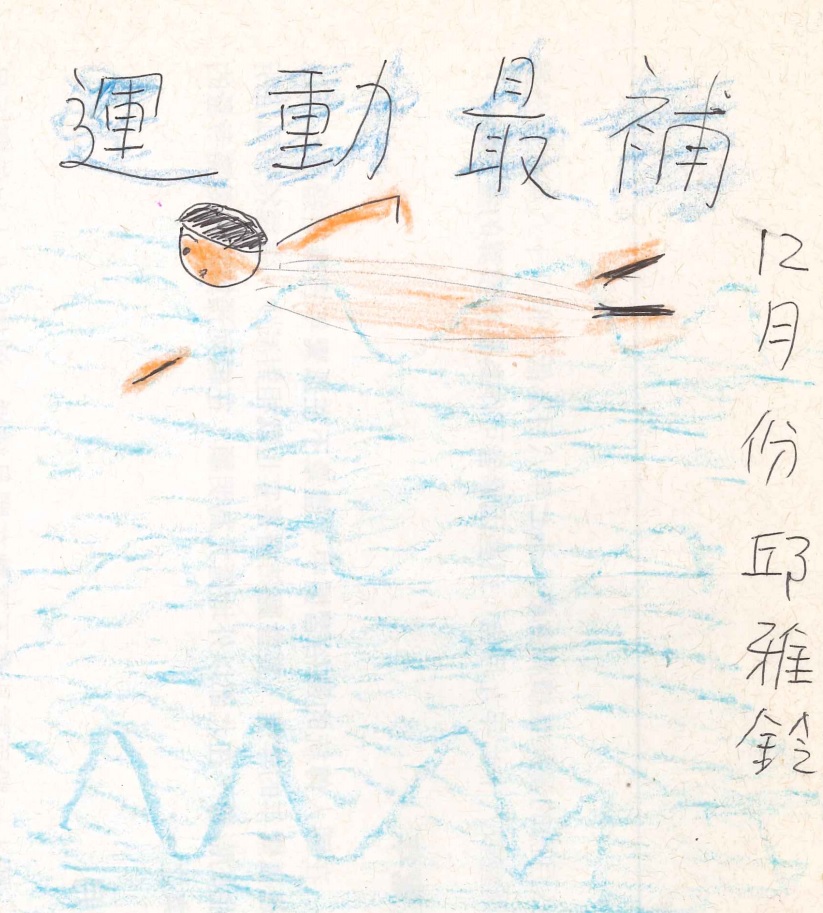 運動最補
12月份 邱雅鈴